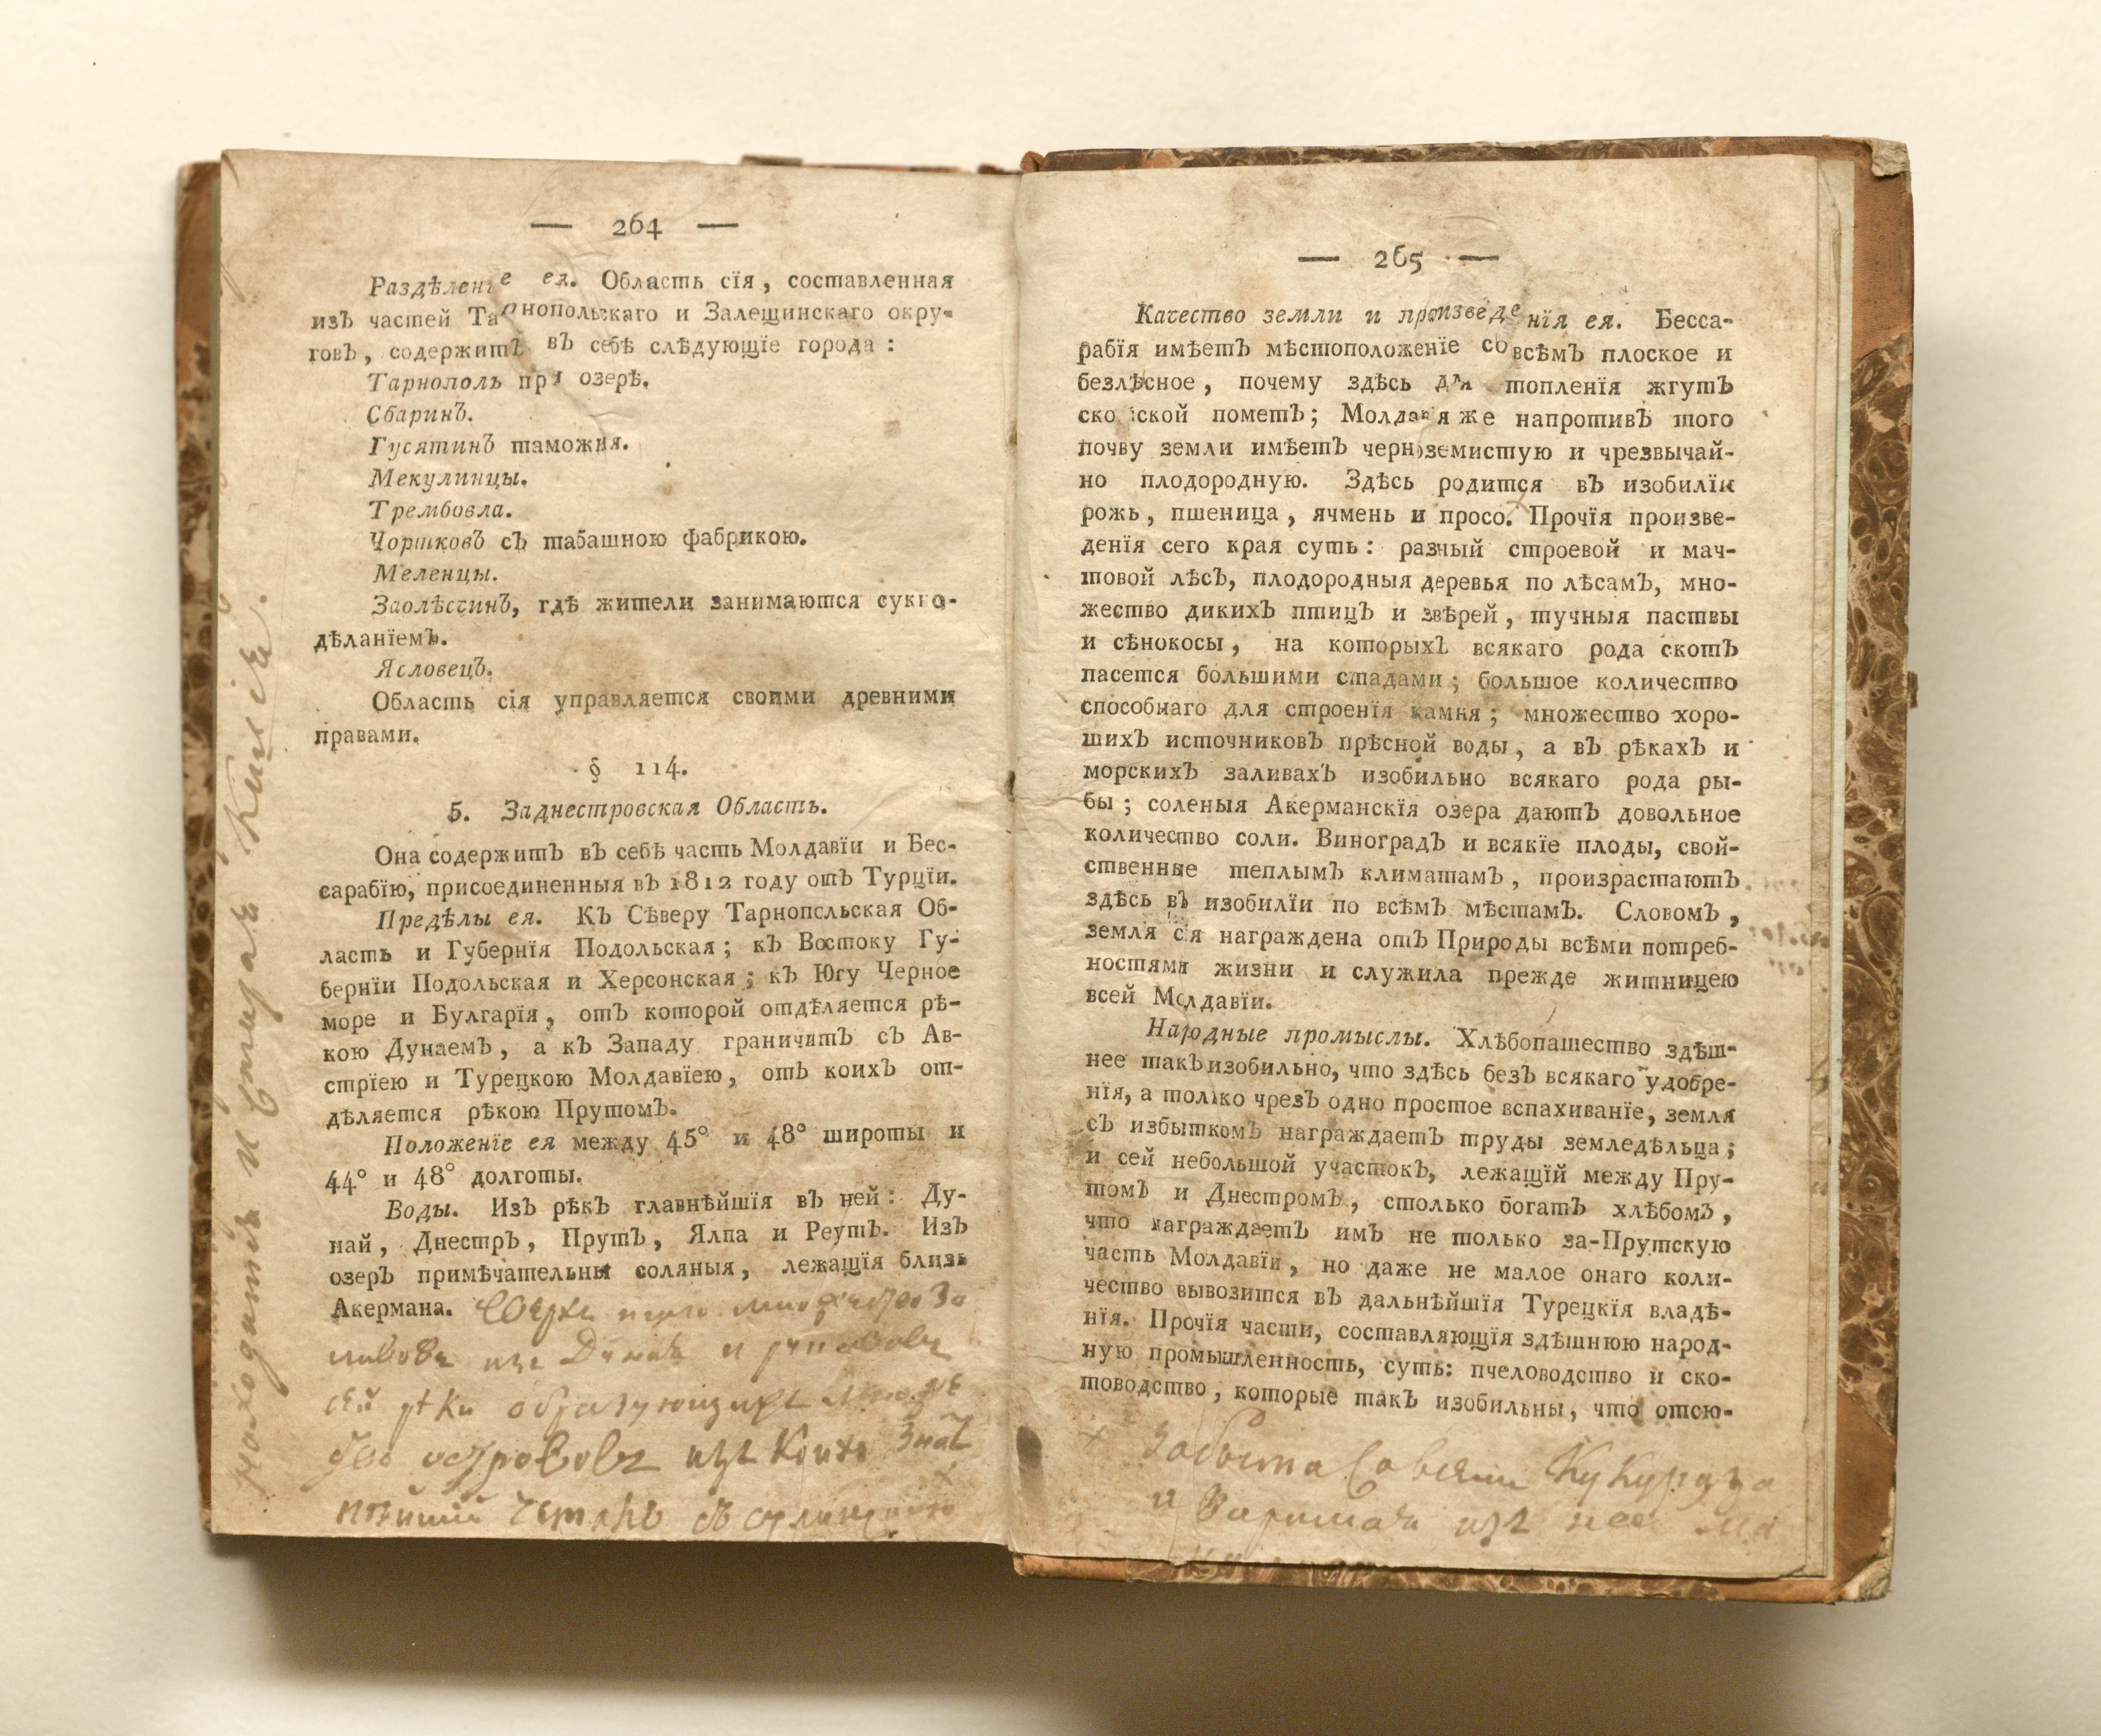 — 264 —
Раздѣленіе ея. Область сїя, составленная
изъ частей Тарнопольскаго и Залещинскаго окру-
говъ, содержитъ въ себѣ слѣдующїе города:
Тарнополь при озерѣ.
Сбаринъ.
Гусятинъ таможня.
Мекулинцы.
Трембовла.
Чортковъ съ табашною фабрикою.
Меленцы.
Заолѣсчинъ, гдѣ жители занимаются сукно-
дѣланїемъ.
Ясловецъ.
Область сїя управляется своими древними
правами.
§ 114.
5. Заднестровская Область.
Она содержитъ въ себѣ часть Молдавїи и Бес-
сарабїю, присоединенныя въ 1812 году отъ Турцїи.
Предѣлы ея. Къ Сѣверу Тарнопольская Об-
ласть и Губернїя Подольская; къ Востоку Гу-
бернїи Подольская и Херсонская; къ Югу Черное
море и Булгарїя, отъ которой отдѣляется рѣ-
кою Дунаемъ, а къ Западу граничитъ съ Ав-
стрїею и Турецкою Молдавїею, отъ коихъ от-
дѣляется рѣкою Прутомъ.
Положенїе ея между 45° и 48° широты и
44° и 48° долготы.
Воды. Изъ рѣкъ главнѣйшїя въ ней: Ду-
най, Днестръ, Прутъ, Ялпа и Реутъ. Изъ
озеръ примѣчательны соляныя, лежащїя близь
Акермана. Сверхъ того множество за
ливовъ изъ Дуная и рукавовъ
сей рѣки образующихъ множе
ство острововъ изъ коихъ знат
нѣйшій Четалъ
находятся и Измаилъ Килія.
— 265 —
Качество земли и произведенїя ея. Бесса-
рабїя имѣетъ мѣстоположенїе совсѣмъ плоское и
безлѣсное, почему здѣсь для топленїя жгутъ
скотской пометъ; Молдавїя же напротивъ того
почву земли имѣетъ черноземистую и чрезвычай-
но плодородную. Здѣсь родится въ изобилїи
рожь, пшеница, ячмень и просо. Прочїя произве-
денїя сего края суть: разный строевой и мач-
товой лѣсъ, плодородныя деревья по лѣсамъ, мно-
жество дикихъ птицъ и звѣрей, тучныя паствы
и сѣнокосы, на которыхъ всякаго рода скотъ
пасется большими стадами; большое количество
способнаго для строенїя камня; множество хоро-
шихъ источниковъ прѣсной воды, а въ рѣкахъ и
морскихъ заливахъ изобильно всякаго рода ры-
бы; соленыя Акерманскїя озера даютъ довольное
количество соли. Виноградъ и всякїе плоды, свой-
ственные теплымъ климатамъ, произрастаютъ
здѣсь въ изобилїи по всѣмъ мѣстамъ. Словомъ,
земля сїя награждена отъ Природы всѣми потреб-
ностями жизни и служила прежде житницею
всей Молдавїи.
Народные промыслы. Хлѣбопашество здѣш-
нее такъ изобильно, что здѣсь безъ всякаго удобре-
нїя, а только чрезъ одно простое вспахиванїе, земля
съ избыткомъ награждаетъ труды земледѣльца;
и сей небольшой участокъ, лежащїй между Пру-
томъ и Днестромъ, столько богатъ хлѣбомъ,
что награждаетъ имъ не только за-Прутскую
часть Молдавїи, но даже не малое онаго коли-
чество вывозится въ дальнѣйшїя Турецкїя владѣ-
нїя. Прочїя части, составляющїя здѣшнюю народ-
ную промышленность, суть: пчеловодство и ско-
товодство, которые такъ изобильны, что отсю-
забыта совсѣмъ кукуруза
и изъ нее ма